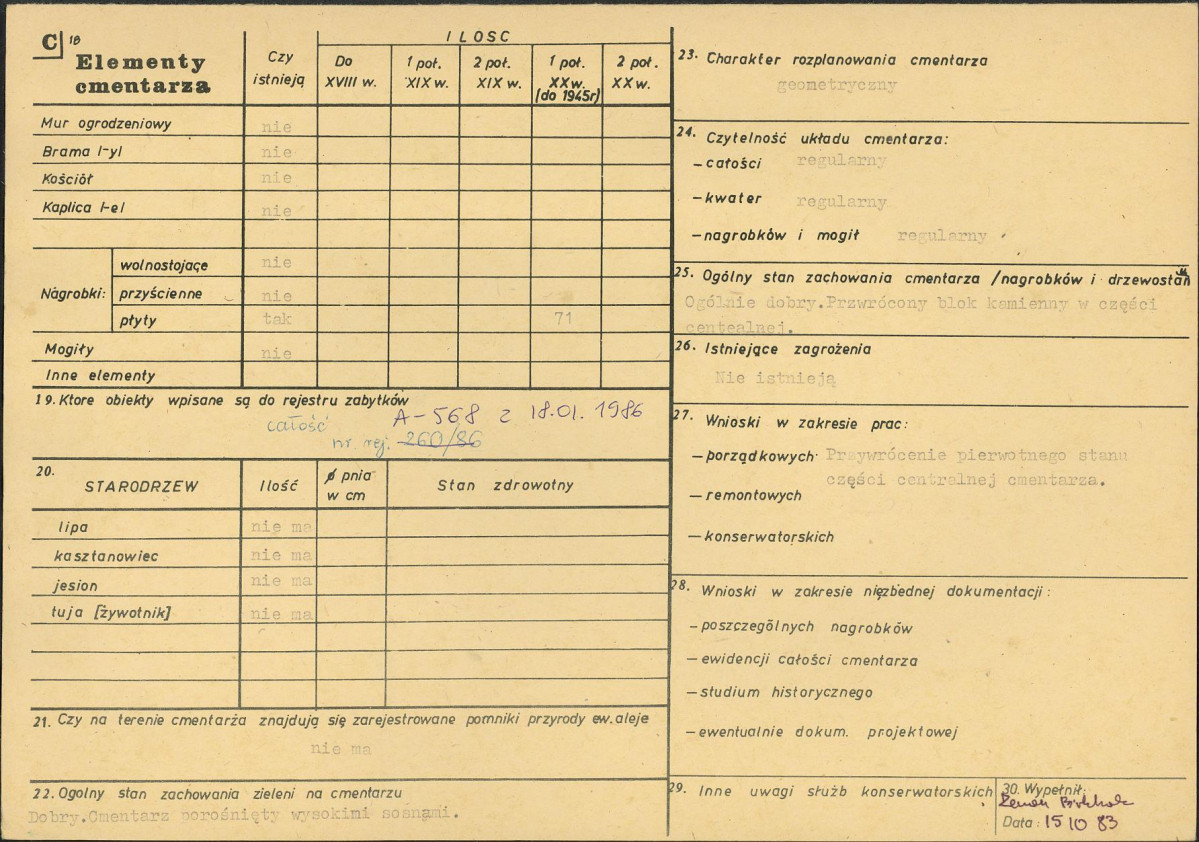 C 18
Elementy
cmentarza
Czy
istnieją
ILOSC
Do
XVIII w.
1 poł.
XIX w.
2 poł.
XIX w.
1 poł.
XX w.
(do 1945r)
2 poł.
XX w.
Mur ogrodzeniowy nie
Brama /-y/ nie
Kościół nie
Kaplica /-e/ nie
Nagrobki:
wolnostojące nie
przyścienne nie
płyty tak 71
Mogiły nie
Inne elementy
19. Ktore obiekty wpisane są do rejestru zabytków
całość A-568 z 18.01. 1986
nr. rej. 260/86
20.
STARODRZEW Ilość ø pnia
w cm
Stan zdrowotny
lipa nie ma
kasztanowiec nie ma
jesion nie ma
tuja [żywotnik] nie ma
21. Czy na terenie cmentarża znajdują się zarejestrowane pomniki przyrody ew. aleje
nie ma
22. Ogolny stan zachowania zieleni na cmentarzu
Dobry.Cmentarz porośnięty wysokimi sosnami.
23. Charakter rozplanowania cmentarza
geometryczny
24. Czytelność układu cmentarza:
– całości regularny
– kwater regularny
– nagrobków i mogił regularny
25. Ogólny stan zachowania cmentarza /nagrobków i drzewostan
Ogólnie dobry.Przwrócony blok kamienny w części
centealnej.
26. Istniejące zagrożenia
Nie istnieją
27. Wnioski w zakresie prac:
– porządkowych Przywrócenie pierwotnego stanu
części centralnej cmentarza.
– remontowych
– konserwatorskich
28. Wnioski w zakresie niezbednej dokumentacji:
– poszczególnych nagrobków
– ewidencji całości cmentarza
– studium historycznego
– ewentualnie dokum. projektowej
29. Inne uwagi służb konserwatorskich
30. Wypełnił:
Zenon
Data: 15 10 83